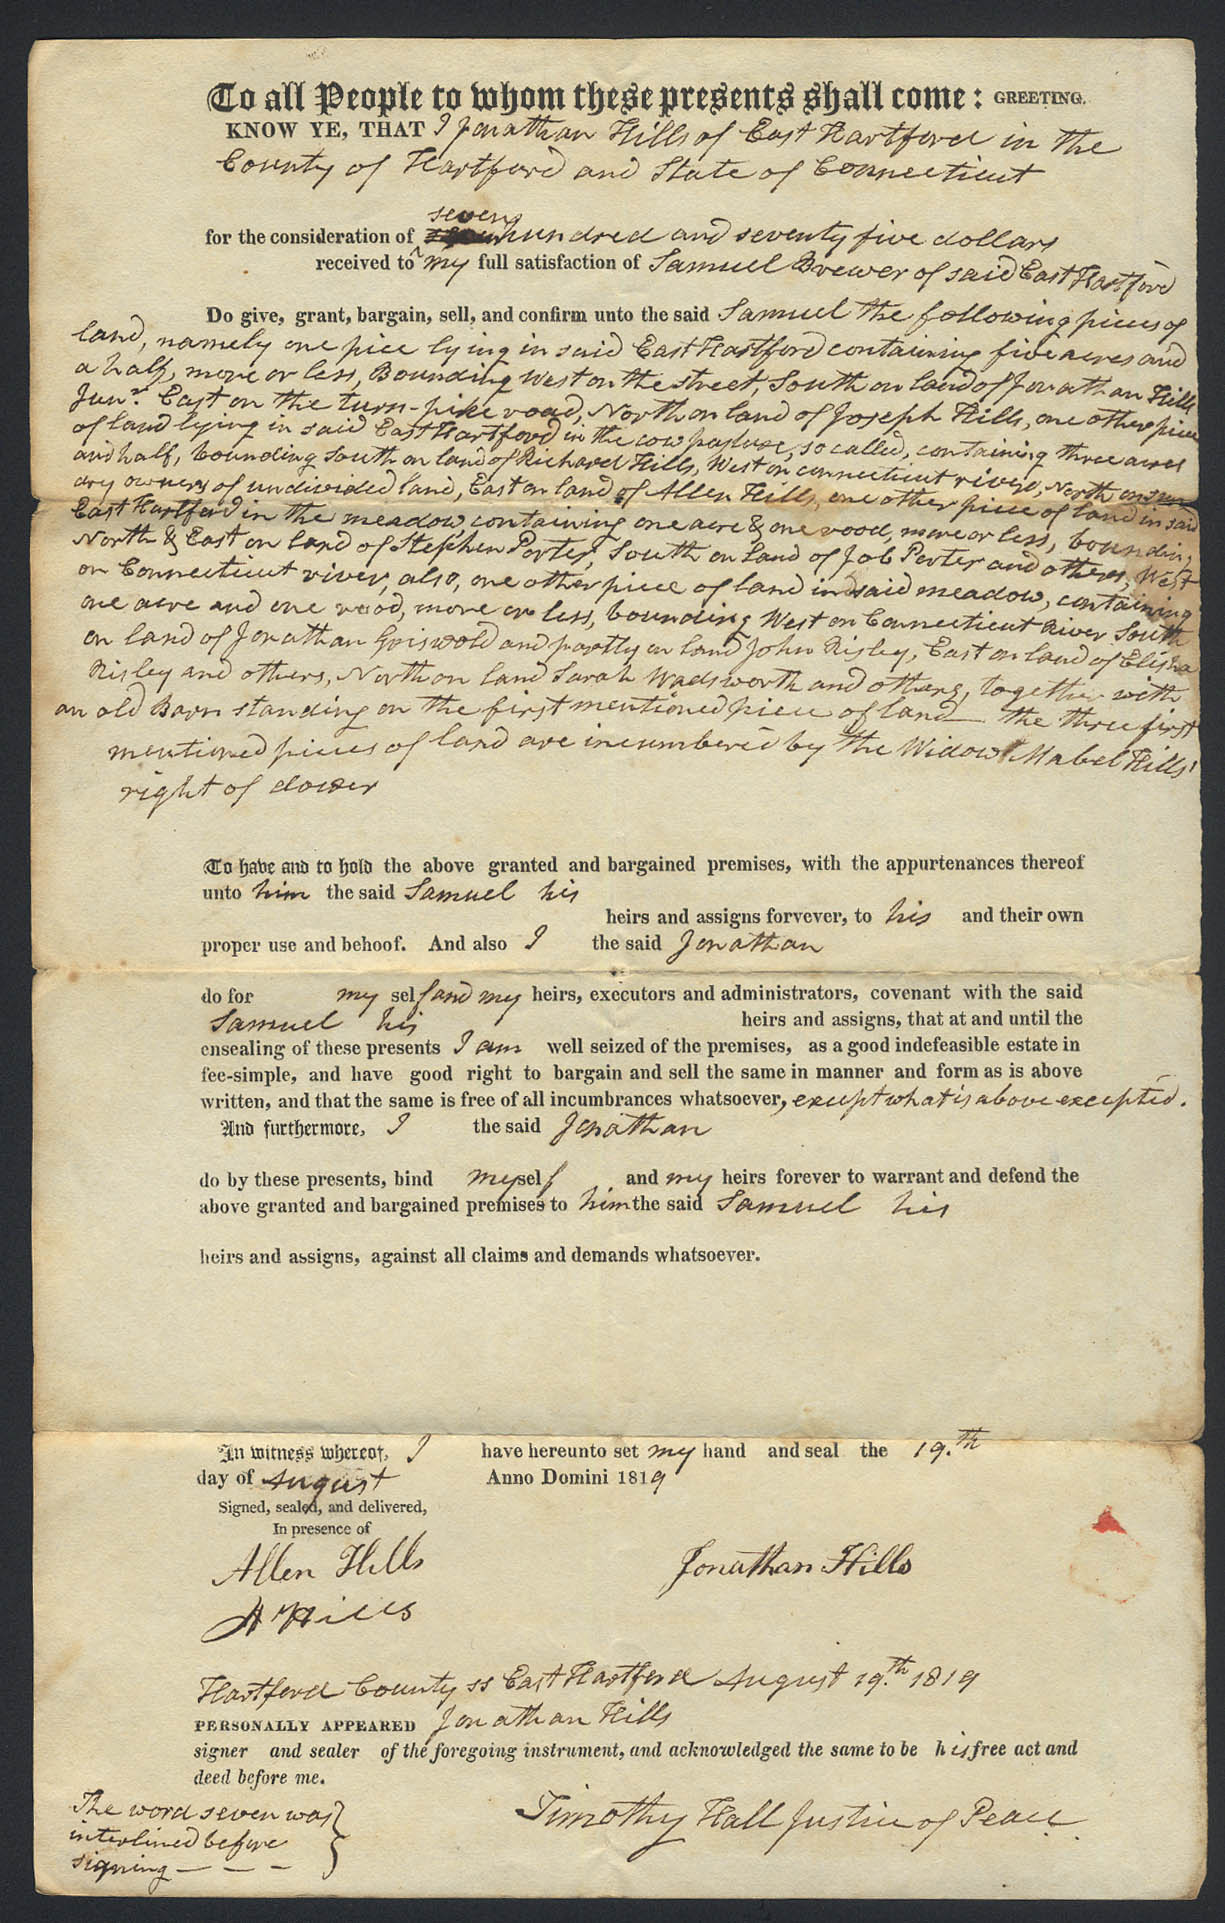 To all People to whom these presents shall come: GREETING.
KNOW YE, THAT I Jonathan Hills of East Hartford in the
County of Hartford and State of Connecticut
seven
for the consideration of hundred and seventy five dollars
received to my full satisfaction of Samuel Brewer of said East Hartford
Do give, grant, bargain, sell, and confirm unto the said Samuel the following pieces of
land, namely one piece lying in said East Hartford containing five acres and
a half, more or less, Bounding West on the street, South on land of Jonathan Hills
Junr. East on the turn-pike road, North on land of Joseph Hills, one other piece
of land lying in said East Hartford in the cow pasture, so called, containing three acres
and half, bounding South on land of Richard Hills, West on connecticut river, North on sun
dry owners of undivided land, East on land of Allen Hills, one other piece of land in said
East Hartford in the meadow, containing one acre & one rood, more or less, bounding
North & East on land of Stephen Porter, South on land of Job Porter and others, West
on Connecticut river, also, one other piece of land in said meadow, containing
one acre and one rood, more or less, bounding West on Connecticut River South
on land of Jonathan Griswold and partly on land John Risley, East on land of Elisha
Risley and others, North on land Sarah Wadsworth and others, together with
an old Barn standing on the first mentioned piece of land — the three first
mentioned pieces of land are incumbered by the Widow Mabel Hills'
right of dower
To have and to hold the above granted and bargained premises, with the appurtenances thereof
unto him the said Samuel his
heirs and assigns forvever, to his and their own
proper use and behoof. And also I the said Jonathan
do for my self and my heirs, executors and administrators, covenant with the said
Samuel his heirs and assigns, that at and until the
ensealing of these presents I am well seized of the premises, as a good indefeasible estate in
fee-simple, and have good right to bargain and sell the same in manner and form as is above
written, and that the same is free of all incumbrances whatsoever, except what is above excepted.
And furthermore, I the said Jonathan
do by these presents, bind myself and my heirs forever to warrant and defend the
above granted and bargained premises to him the said Samuel his
heirs and assigns, against all claims and demands whatsoever.
In witness whereof, I have hereunto set my hand and seal the 19.th
day of August Anno Domini 1819
Signed, sealed, and delivered,
In presence of
Allen Hills
Jonathan Hills
A Hills
Hartford County ss East Hartford August 19.th 1819
PERSONALLY APPEARED Jonathan Hills
signer and sealer of the foregoing instrument, and acknowledged the same to be his free act and
deed before me.
Timothy Hall Justice of Peace.
The word seven was
interlined before
signing — — —